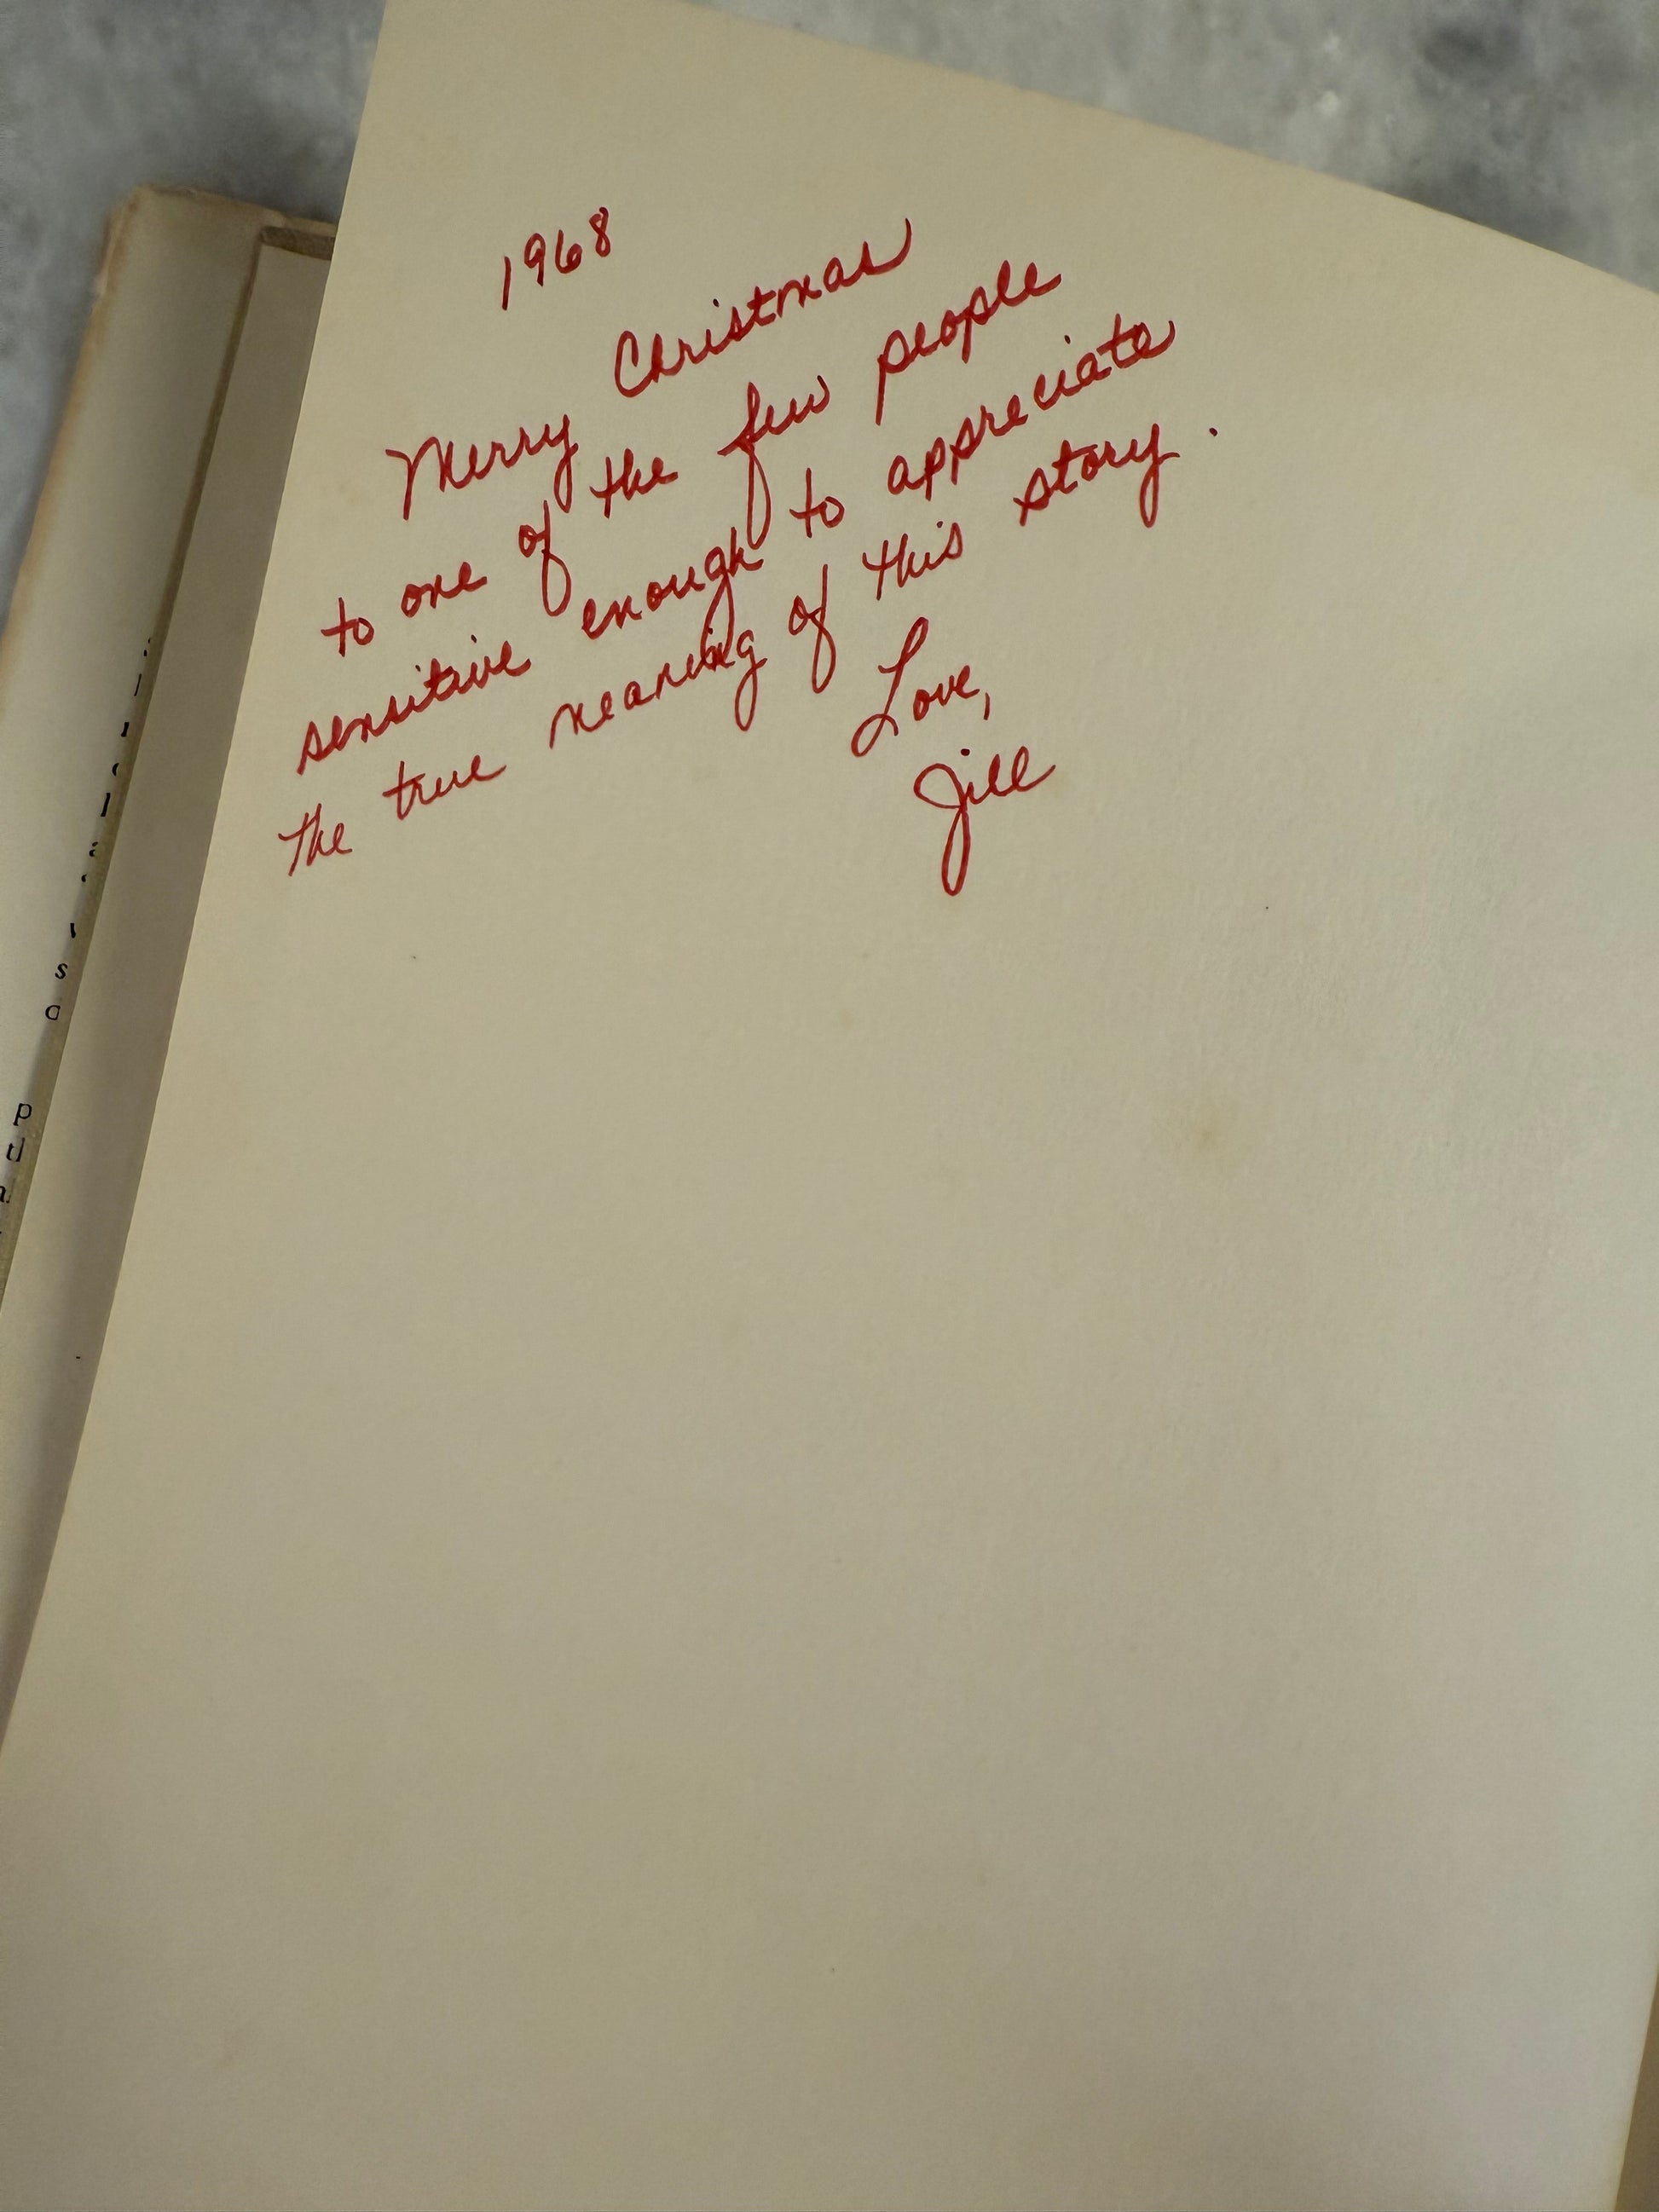 1968
Merry Christmas
to one of the few people
sensitive enough to appreciate
the true meaning of this story.
Love,
Jill
s
p